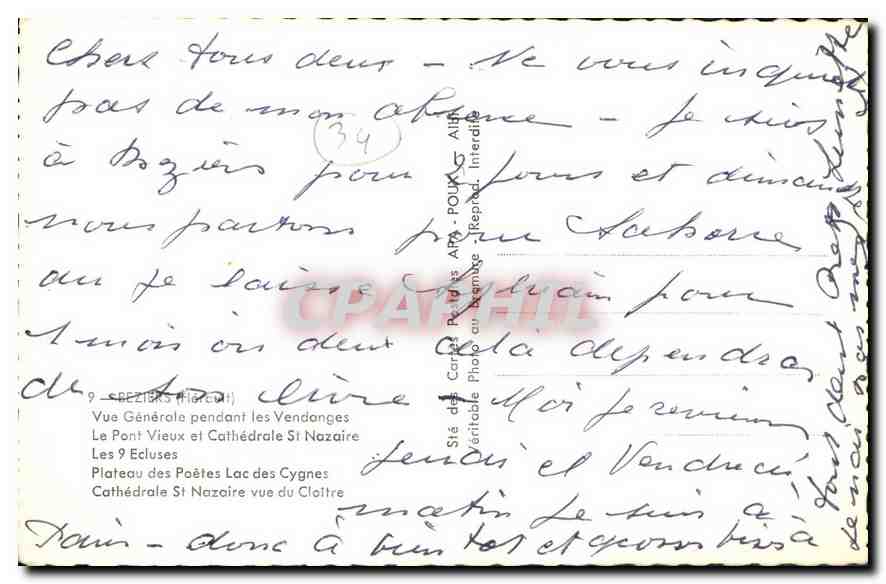 Chers tous deux - Ne vous inquiet
pas de mon absence - Je suis
34
à Beziers pour jours et dimanche
nous partons pour
ou je laisse Sylvain pour
1 mois ou deux cela dependras
de son livre! Moi je reviens
jeudi et Vendredi
matin je suis à
Paris - donc à bientot et grosses bises à
tous deux
9 - BEZIERS (Hérault)
Vue Générale pendant les Vendanges
Le Pont Vieux et Cathédrale St Nazaire
Les 9 Ecluses
Plateau des Poètes Lac des Cygnes
Cathédrale St Nazaire vue du Cloître
Sté des Cartes Postales APA - POUX - Albi
Véritable Photo au Bromure - (Reprod. Interdite
CPAPHIL